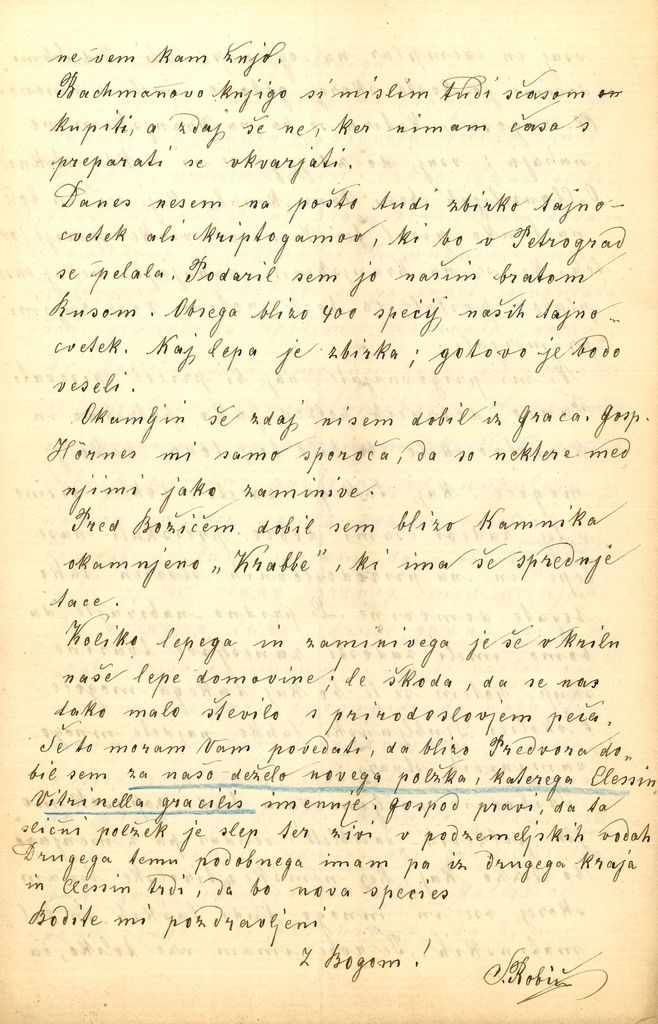 ne vem kam ž njo.
Bachmanovo knjigo si mislim tudi sčasom
kupiti, a zdaj še ne, ker nimam časa s
preparati se vkvarjati.
Danes nesem na pošto tudi zbirko tajno-
cvetek ali kriptogamov, ki bo v Petrograd
se pelala. Podaril sem jo našim bratom
Rusom. Obsega blizo 400 specij naših tajno-
cvetek. Kaj lepa je zbirka; gotovo je bodo
veseli.
Okamnjin še zdaj nisem dobil iz Graca. Gosp.
Hörnes mi samo sporoča, da so nektere med
njimi jako zaminive.
Pred Božičem dobil sem blizo Kamnika
okamnjeno „Krabbe", ki ima še sprednje
tace.
Koliko lepega in zaminivega je še v krilu
naše lepe domovine! le škoda, da se nas
tako malo število s prirodoslovjem peča.
Še to moram Vam povedati, da blizo Predvora do-
bil sem za našo deželo novega polžka, katerega Clessin
Vitrinella gracilis imenuje. Gospod pravi, da ta
slični polžek je slep ter živi v podzemeljskih vodah
Drugega temu podobnega imam pa iz drugega kraja
in Clessin trdi, da bo nova species
Bodite mi pozdravljeni
Z Bogom!
S. Robič